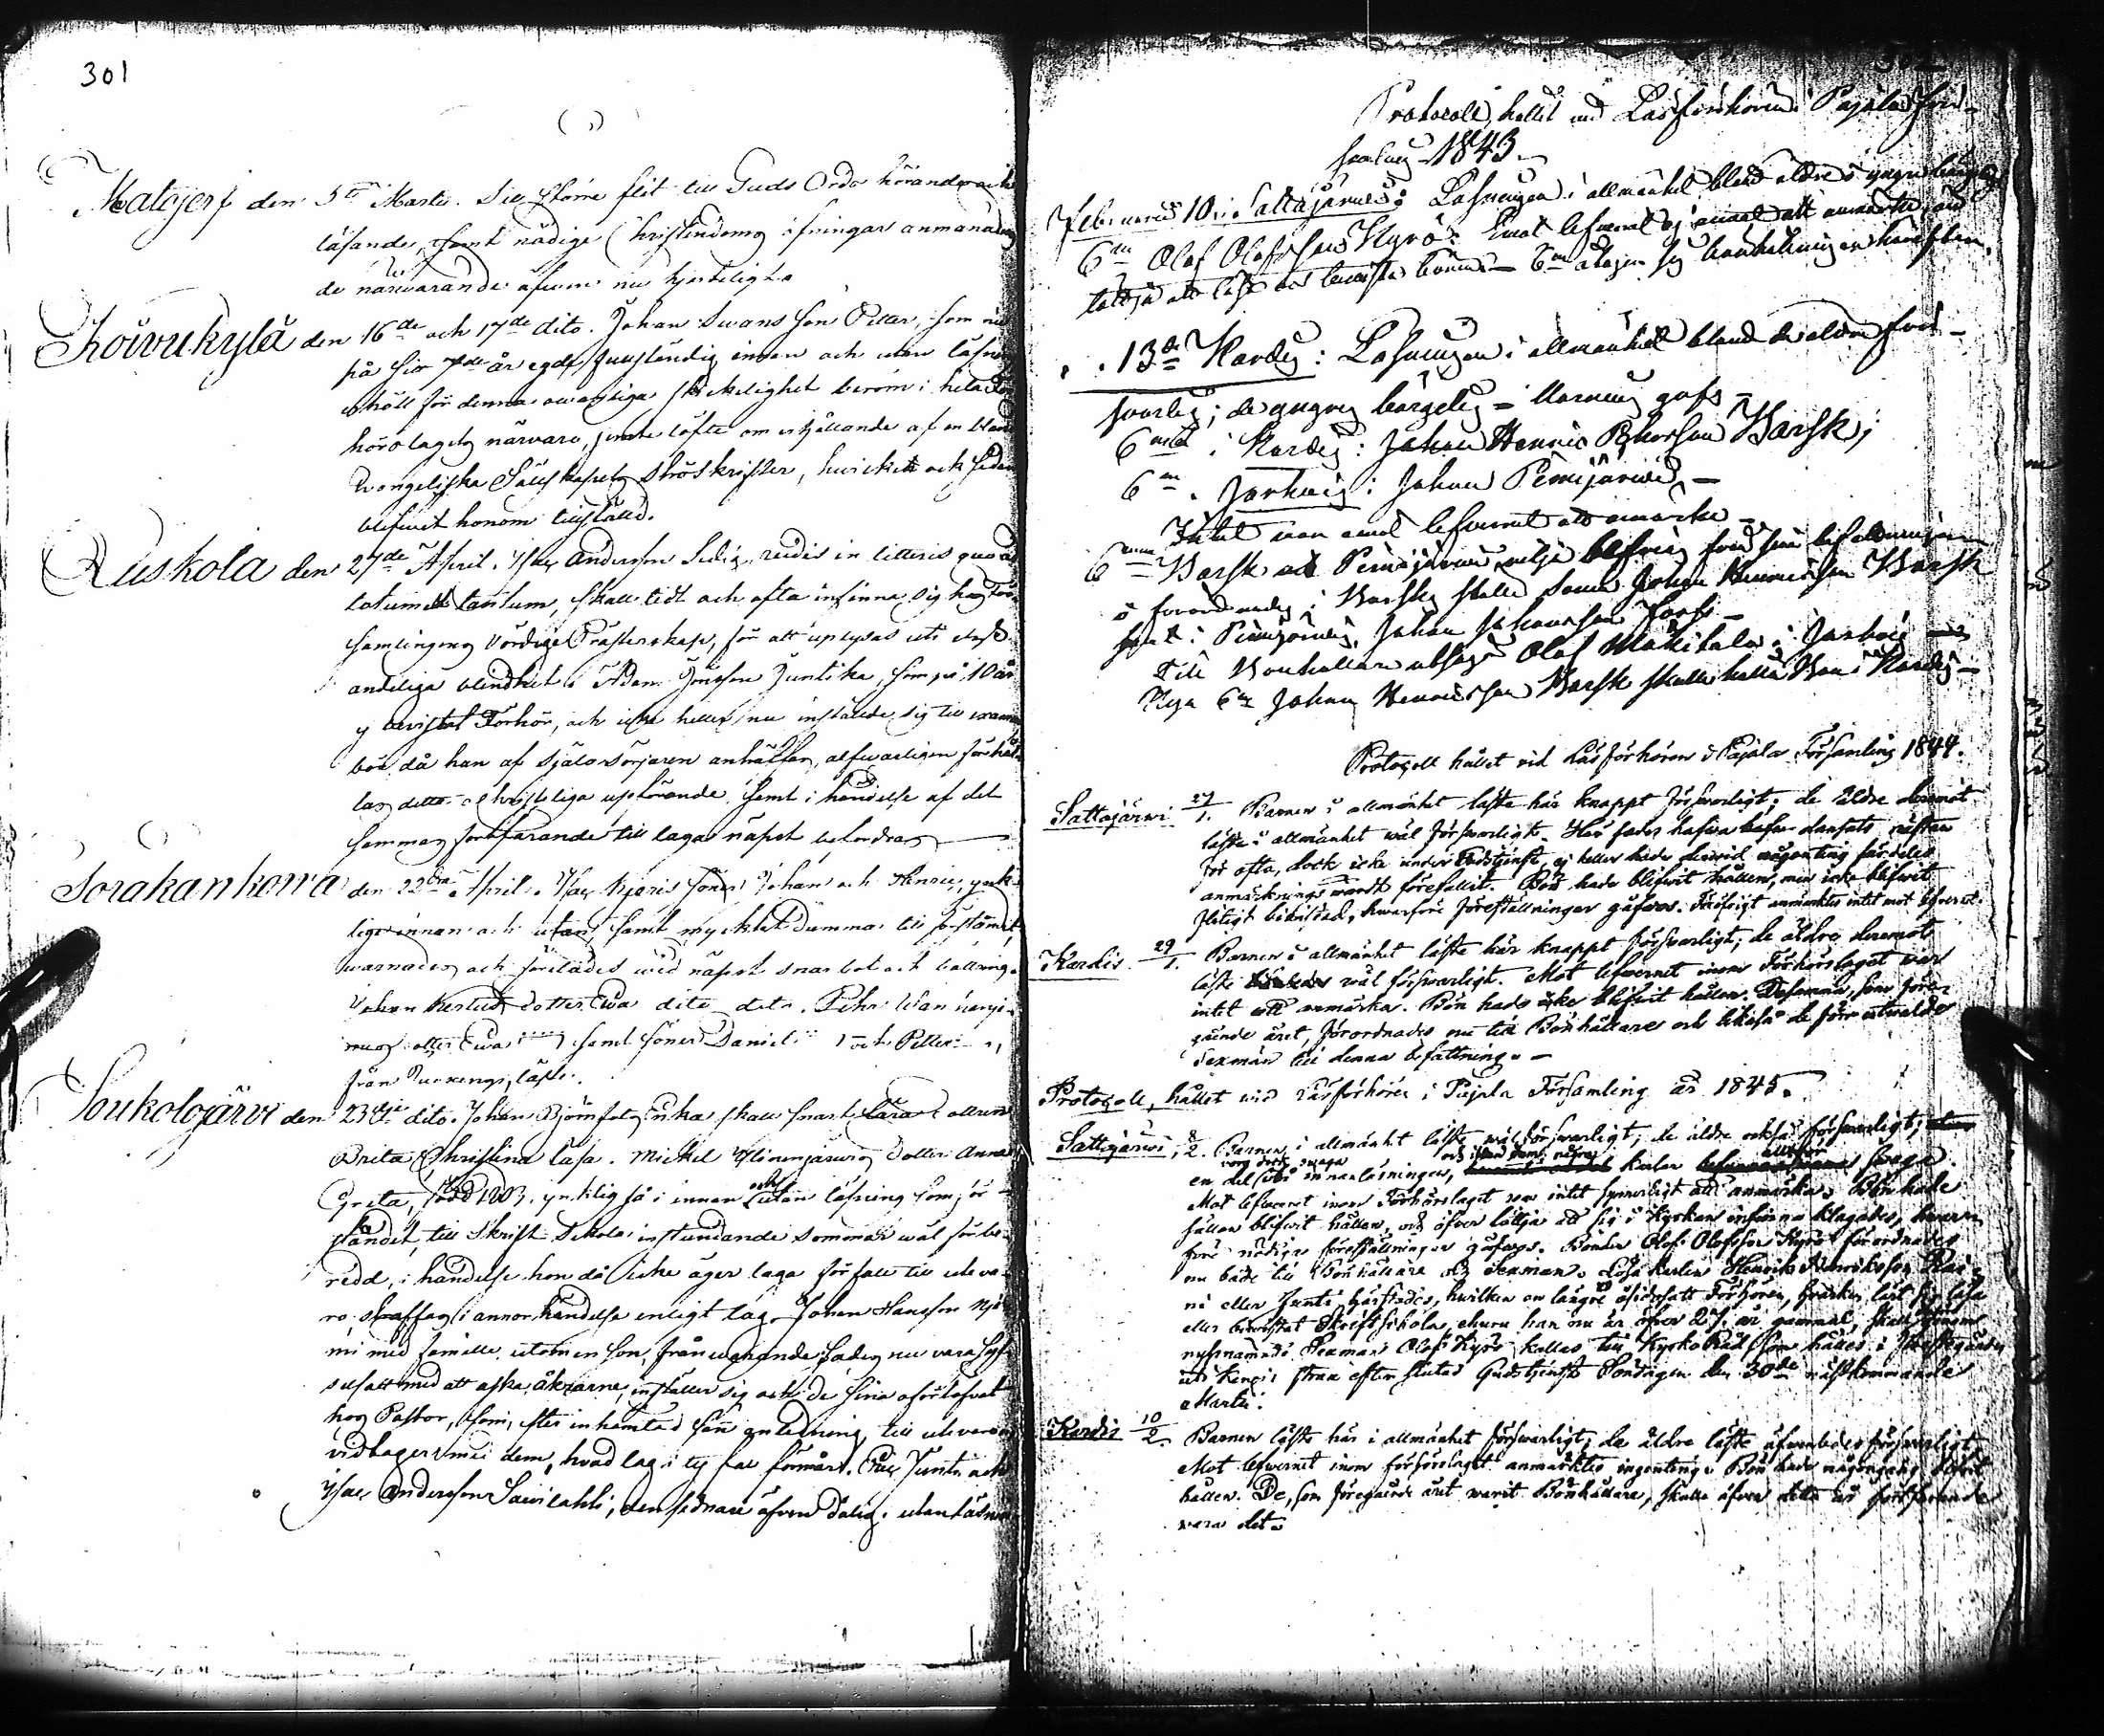 301
Matojerf den 5te Martii. Till större flit till Guds Ords hörande och
läsande, samt nödige Christendoms öfningar anmanades
de närwarande äfwen nu hjerteligt.
Koivukylä den 16de och 17de dito. Johan Swans son Petter, som nu
på sir 7de år egde fullständig innan och utan läsning
erhöll för denna owanliga skickelighet beröm i hela För-
hörslagets närvaro, jemte löfte om erhållande af en bland
Evangeliska Sällskapets ströskrifter, hvicket ock sedan
blifwit honom tillställd.
Ruskola den 27de April. Isac Andersson rudis in litteris quoad
totum et tantum, skall tidt och ofta infinna sig hos För-
samlingens Vördige Prästerskap, för att uplysas uti dess
andeliga blindhet. Adam Jönsson Juntika, som på 10 år
ej bevistat Förhör, och icke heller nu inställde sig till
bör då han af själasörjaren anträffas, alfwarligen förehål-
las detta ochristeliga upförande samt i händelse af det
sammas fortfarande till laga näpst befordras
Torakankorva den 22dra April. Isac söner Johan och Henric, ynk-
lige innan och utan, samt mycket dumma till förståndet,
warnades och förelades wid näpst snar bot och bättring.
Johan dotter Ewa dito dito. Pehr
dotter Ewa samt söner Daniel och Petter
från läste.
Soukolojärvi den 23dje dito. Johan Björnfot skall snart lära dottren
Brita Christina läsa. Mickel dotter Anna
Greta, född 1803. ynkelig så i innan och utan läsning som för-
ståndet, till Skrift Skola instundande sommar wäl förbe-
redd, i händelse hon då icke äger laga förfall till uteva-
ro straffas i annor händelse enligt lag. Johan Hansson
med familie, utom en son, frånwarande säges nu vara sys-
selsatt med att aska åkrarne, inställer sig och de sina oförtöfvat
hos Pastor, som, efter inhemtad sann anledning till utevaron
vidtager med dem, hvad lag i ty fall förmår. Isac Juntti och
Isac Andersson Savilahti; den sednare äfven dålig i utanläsning
302
Protocoll, hållit wid Läsförhören i Pajala För-
samling 1843.
Februarii 10. i Sattajärwi: Läsningen i allmänhet bland äldre o yngre
6m Olaf Olofsson Kyrö: Emot lefwernet ej annat att anmärka, än
lättja att läsa och bewista bönen. 6m åtager sig bönhållningen härefter.
13de Kardis: Läsningen i allmänhet bland de äldre för-
swarlig; de yngres bärgelig = Warning gafs =
6m i Kardis: Johan Hennic Pehrsson Barsk;
6m i Jarhois: Johan Peräjärwi. —
Intet war emot lefwernet att anmärka —
6m Barsk och Peräjärwi nu från sin befattning
o förordnades i Barsks ställe Sonen Johan Hennicsson Barsk
samt i Peräjärwis Johan Johansson Fors —
Till Bönhållare utsågs Olof Mäkitalo i Jarhois
Nya 6m Johan Hennicsson Barsk skulle hålla Bön i Kardis —
Protocoll hållit vid Läsförhören i Pajala Församling 1844.
Sattajärwi 27/1. Barnen i allmänhet läste här knappt försvarligt; de äldre deremot
läste i allmänhet wäl försvarligt. Här sades hafwa hafva dansats nästan
för ofta, dock icke under Gudstjenst, ej heller hade derwid någonting särdeles
anmärknings wärdt förefallit. Bön hade blifwit hållen, men icke blifwit
flitigt bewistad, hwarföre föreställningar gåfwos. Iöfrigt anmärktes intet mot lefvernet.
Kardis 29/1. Barnen i allmänhet läste här knappt försvarligt; de äldre deremot
läste wäl försvarligt. Mot lefwernet inom Förhörslaget war
intet att anmärka. Bön hade icke blifwit hållen. Desamma, som före-
gående året, förordnades nu till Bönhållare och likaså de förr utwalde
Sexmän till denna befattning. —
Protocoll, hållet wid Läsförhören i Pajala Församling år 1845.
Sattajärwi, 8/2. Barnen i allmänhet läste wäl försvarligt; de äldre också försvarligt;
en del woro dock swaga i innanläsningen, och ibland dem några karlar alltför swaga.
Mot lefwernet inom Förhörslaget war intet synnerligt att anmärka. Bön hade
sällan blifwit hållen, och öfver lättja att sig i Kyrkan infinna klagades, hwar-
före nödiga föreställningar gåfwos. Bonden Olof Olofsson Kyrö förordnades
nu både till Bönhållare och Sexman. Lösa karlen Henrik Henriksson
eller Juntti, hwilken en längre tid åsidosatt Förhören, hwarken lärt sig läsa
eller bewistat Skriftskola, ehuru han nu är öfwer 27 år gammal, skall genom
nyssnämnde Sexman Olof Kyrö kallas till Kyrko Råd, som hålles i Prestgården
uti Kengis strax efter slutad Gudstjenst Söndagen den 30de nästkommande
Martii.
Kardis 10/2. Barnen läste här i allmänhet försvarligt; de äldre läste äfwenledes försvarligt
Mot lefwernet inom förhörslaget anmärktes ingenting. Bön hade någongång blifvit
hållen. De, som föregående året warit Bönhållare, skulle äfven detta år fortfarande
vara det.